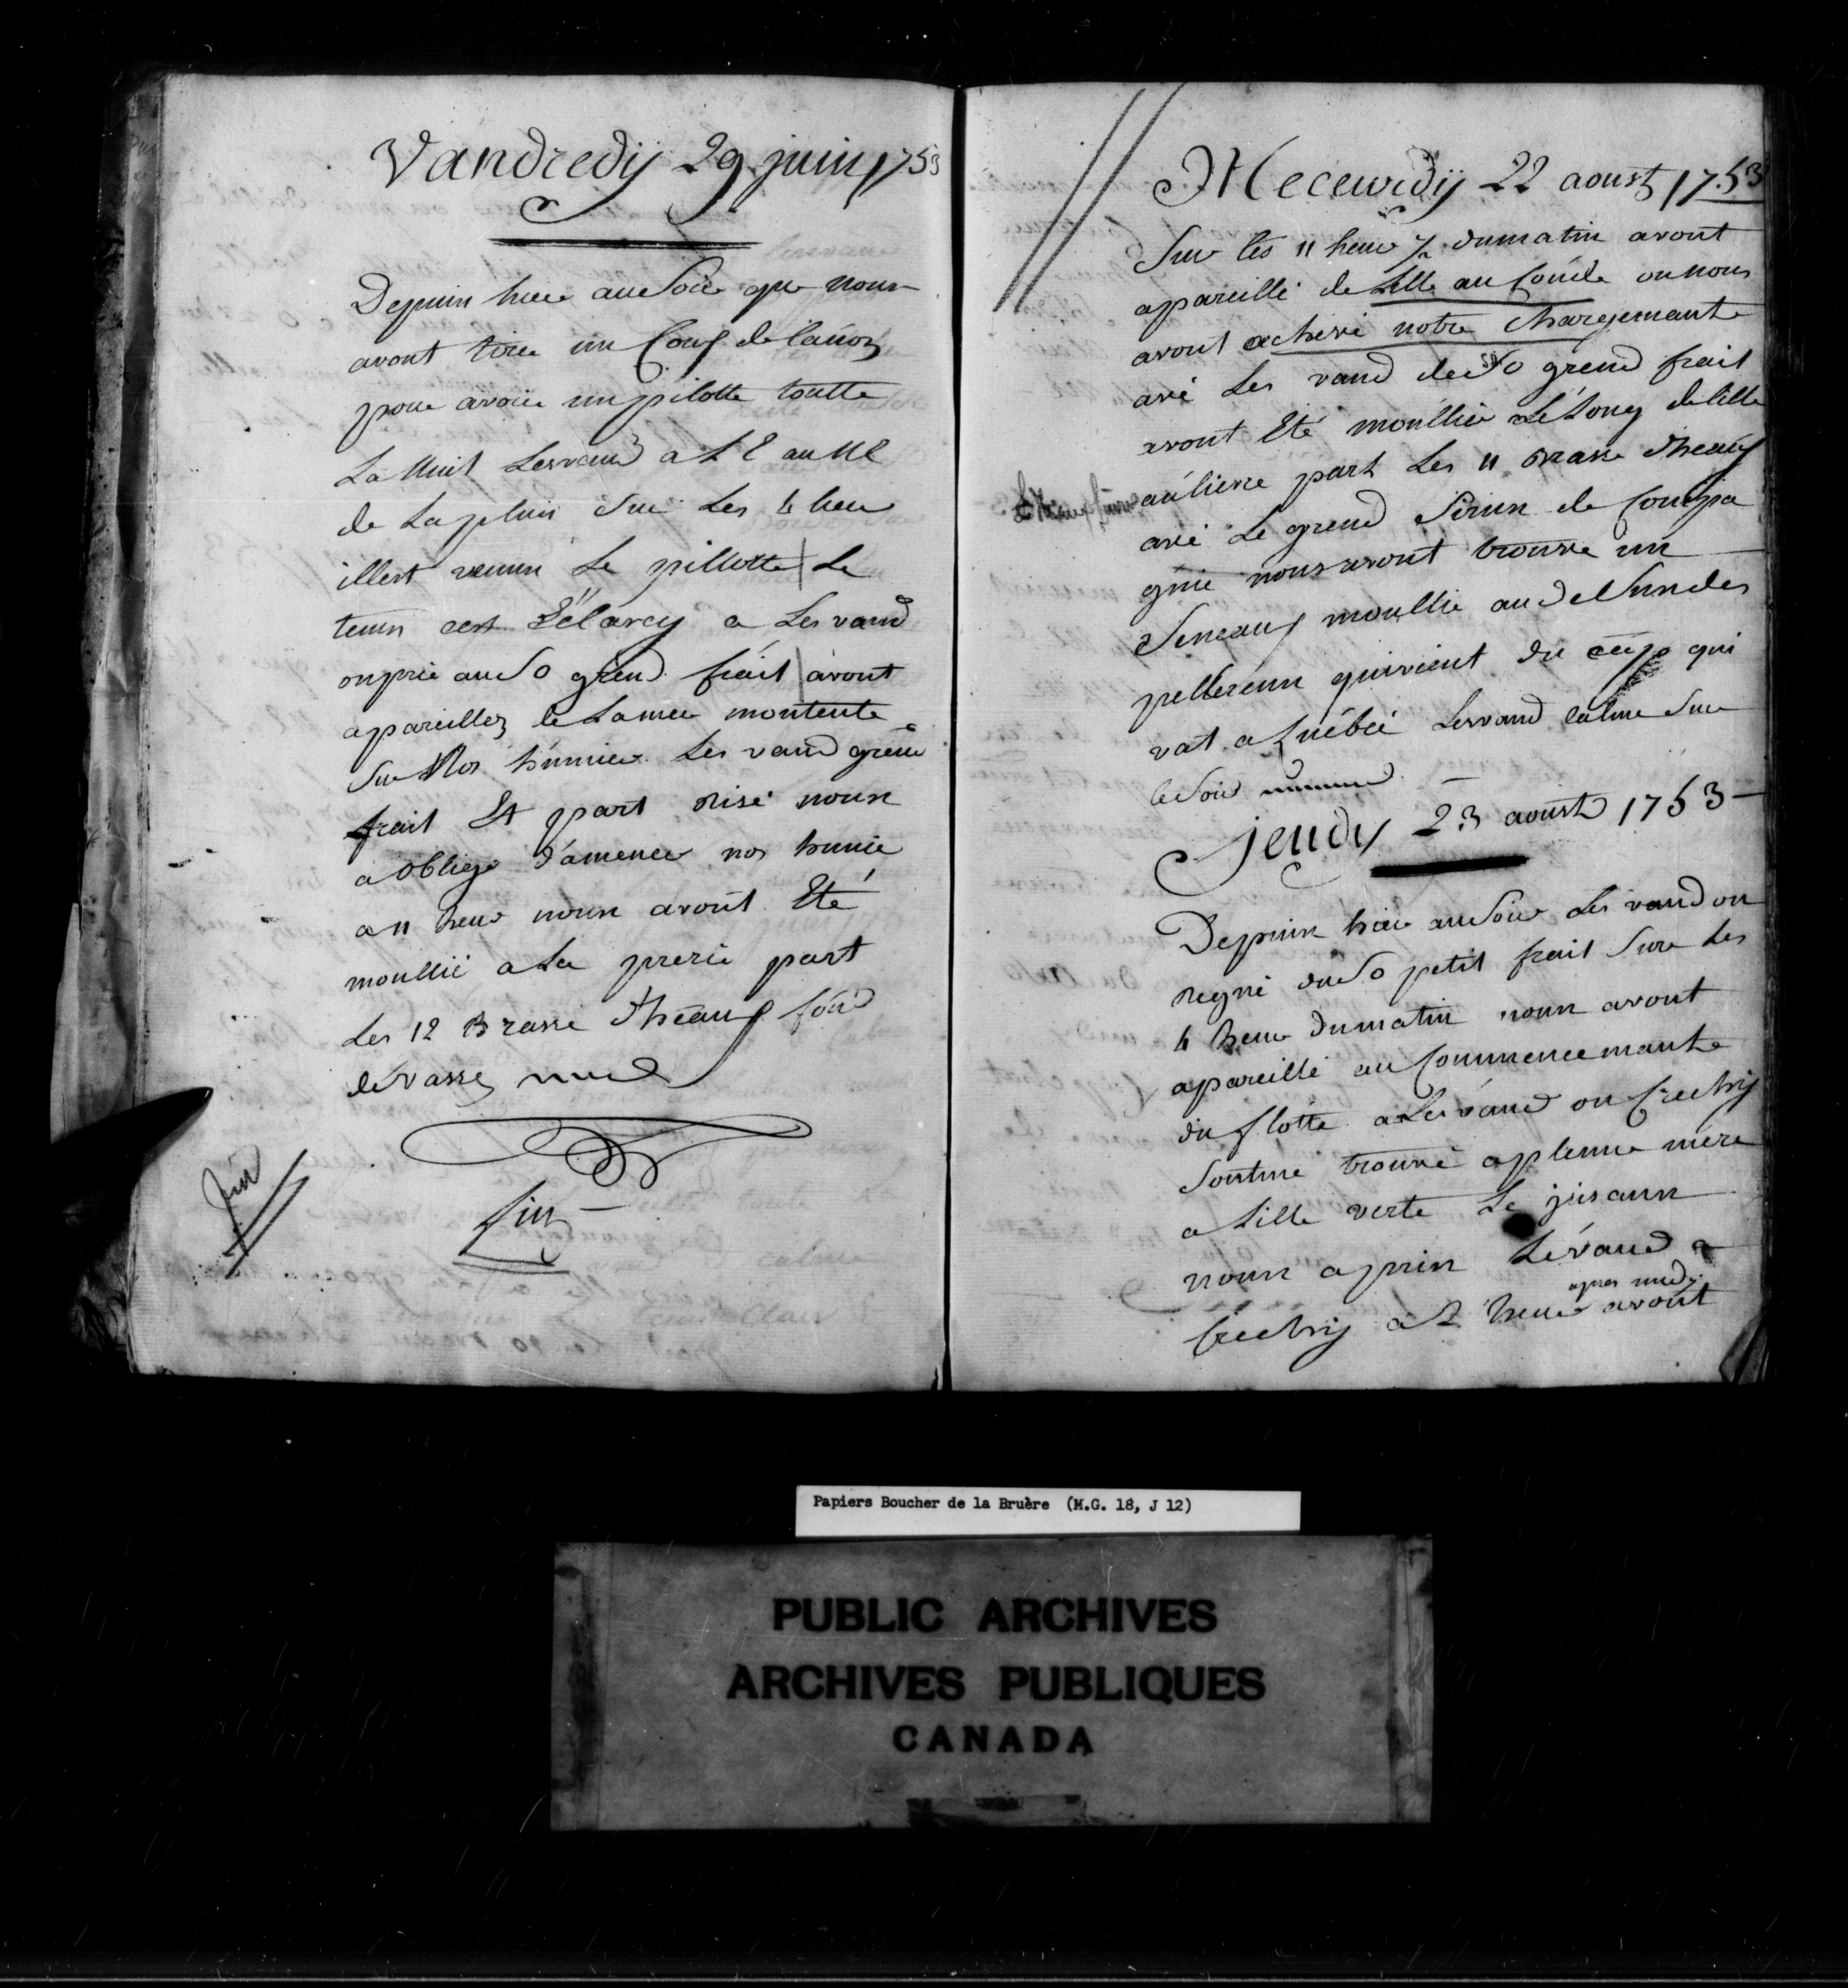 Vandredij 29 juin 1753
Depuin hiee audoir que nour
avont tiree un Coup de Canon
pour avoire un pilotte toutte
La Nuit Lesvand a L E au NE
de Lapluis Sur Les 4 heur
illest venun Le pillotte Le
temn cest Eclarcy a Les vand
onprie au So grend frait avont
apareillez le Lamer montente
Sur Nos hunnier Les vand grend
frait Et part Risé nour
a oblige d'amener nos hunie
a 11 heur nour avont Eté
moullié a La prerie part
Les 12 Brasse dheaux fond
de vasse
fin
fin
Meceurdij 22 aoust 1753
Sur les 11 heur ½ dumatin avont
apareillé de Lille au Coudre ou nous
avont achevé notre Chargemante
avé Les vand de So grend frait
avont Eté moullié Le Long de lille
aulievre part Les 11 Brasse dheaux
avé Le grend Sirun de Compa
gnie nous avont trouve un
Seneaux moullie audesundes
pellerenn quivient du cap qui
vat a Québec Lesvand Calme Sur
le Soir
Jeudy 23 aoust 1753
Depuin hiee audoir Les vand on
Regné du So petit frait Sure Les
4 heur Dumatin nour avont
apareillé au Commencemante
du flotte a Les vand on frechij
Sontme trouvé aplenne mere
a Lille verte Le jusann
nour aprin Lévand a
apres midy
frechij a 2 heur avont
Papiers Boucher de la Bruère (M.G. 18, J 12)
PUBLIC ARCHIVES
ARCHIVES PUBLIQUES
CANADA